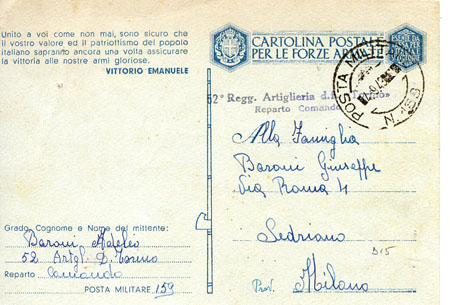 Unito a voi come non mai, sono sicuro che
il vostro valore ed il patriottismo del popolo
italiano sapranno ancora una volta assicurare
la vittoria alle nostre armi gloriose.
VITTORIO EMANUELE
CARTOLINA POSTALE
PER LE FORZE ARMATE
POSTA MILITARE
N. 153
52° Regg. Artiglieria d.f. "Torino"
Reparto Comando
Alla Famiglia
Baroni Giuseppe
Via Roma 4
Sedriano
Prov. Milano
Grado, Cognome e Nome del mittente:
Baroni Adelio
52 Artgl. D. Torino
Reparto Comando
POSTA MILITARE 159